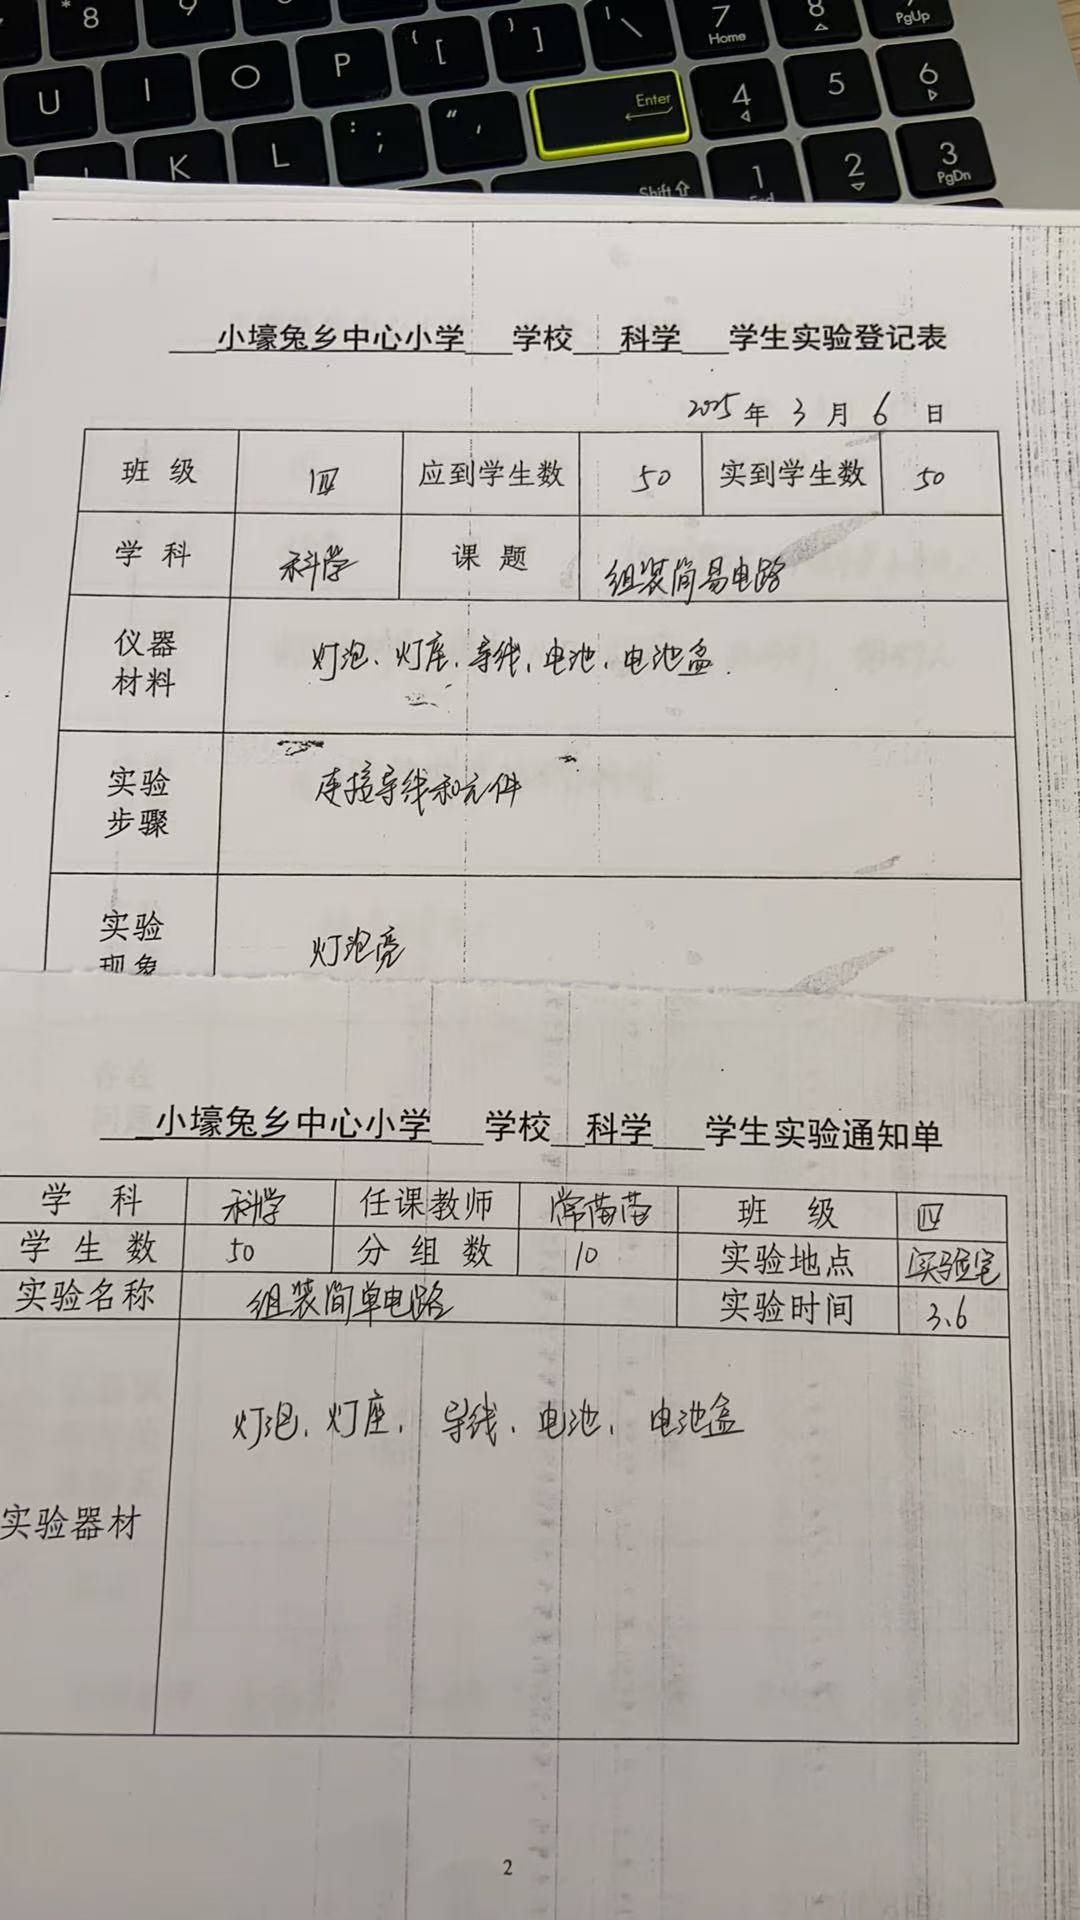 * 8 9 7 Home 8 PgUp
U I O P { [ } ] | \ 4 5 6
K L : ; " , Enter 1 2 3 PgDn
Shift End
小壕兔乡中心小学 学校 科学 学生实验登记表
2025 年 3 月 6 日
班 级 四 应到学生数 50 实到学生数 50
学 科 科学 课 题 组装简易电路
仪器 灯泡、灯座、导线、电池、电池盒.
材料
实验 连接导线和元件
步骤
实验 灯泡亮
现象
小壕兔乡中心小学 学校 科学 学生实验通知单
学 科 科学 任课教师 常苗苗 班 级 四
学 生 数 50 分 组 数 10 实验地点 实验室
实验名称 组装简单电路 实验时间 3.6
灯泡、灯座、导线、电池、电池盒
实验器材
2